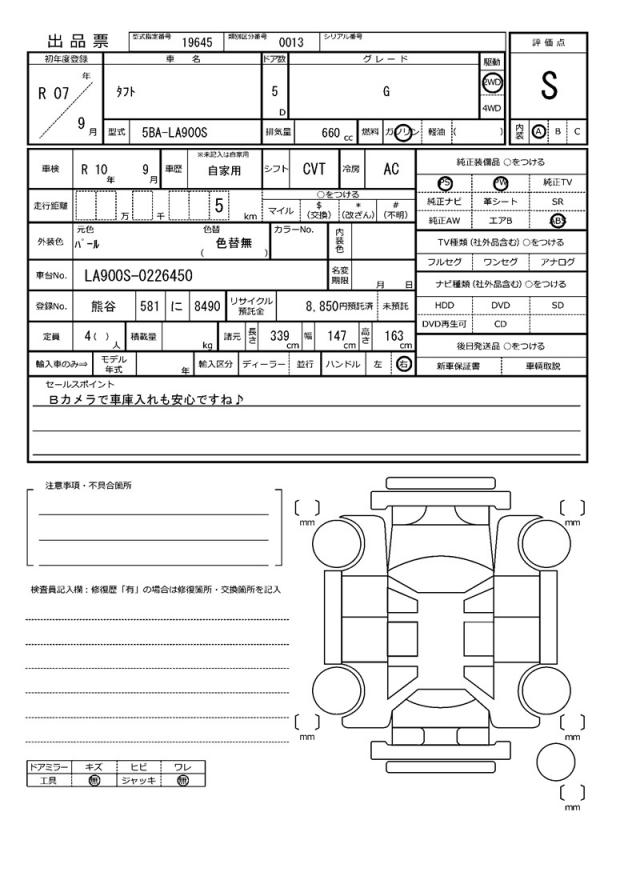 出品票
型式指定番号 19645 類別区分番号 0013 シリアル番号
初年度登録 車名 ドア数 グレード 駆動 評価点
R 07 年 9 月
タフト 5 D G 2WD 4WD S
型式 5BA-LA900S 排気量 660 cc 燃料 ガソリン 軽油 ( ) 内装 A B C
車検 R 10 年 9 月 車歴 ※未記入は自家用 自家用 シフト CVT 冷房 AC
純正装備品 ○をつける
PS PW 純正TV
純正ナビ 革シート SR
純正AW エアB ABS
走行距離 万 千 5 km
○をつける
マイル $(交換) *(改ざん) #(不明)
外装色 元色 パール 色替 色替無 ( ) カラーNo. 内装色
TV種類 (社外品含む) ○をつける
フルセグ ワンセグ アナログ
車台No. LA900S-0226450 名変期限 月 日
ナビ種類 (社外品含む) ○をつける
HDD DVD SD
DVD再生可 CD
登録No. 熊谷 581 に 8490 リサイクル預託金 8,850円預託済 未預託
定員 4( ) 人 積載量 kg 諸元 長さ 339 cm 幅 147 cm 高さ 163 cm
後日発送品 ○をつける
新車保証書 車輌取説
輸入車のみ⇒ モデル年式 年 輸入区分 ディーラー 並行 ハンドル 左 右
セールスポイント
Bカメラで車庫入れも安心ですね♪
注意事項・不具合箇所
検査員記入欄:修復歴「有」の場合は修復箇所・交換箇所を記入
mm
mm
mm
mm
mm
ドアミラー キズ ヒビ ワレ
工具 無 ジャッキ 無